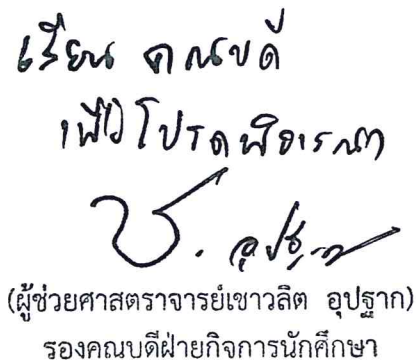 เรียน คณบดี
เพื่อโปรดพิจารณา
ช. อุปฐาก
(ผู้ช่วยศาสตราจารย์เชาวลิต อุปฐาก)
รองคณบดีฝ่ายกิจการนักศึกษา